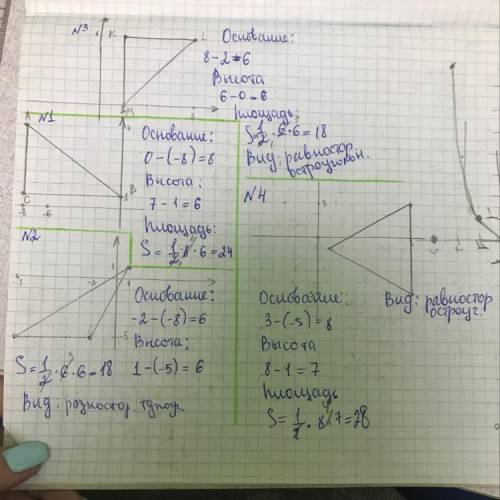 N3
K
L
M
Основание:
8-2=6
Высота
6-0=6
Площадь:
S=1/2·6·6=18
Вид: равностор
остроугольн.
N1
A
C
B
-8 -6
Основание:
0-(-8)=8
Высота:
7-1=6
Площадь:
S=1/2·8·6=24
N2
1
-2
-5
Основание:
-2-(-8)=6
Высота:
1-(-5)=6
S=1/2·6·6=18
Вид: розностор тупоуг.
N4
3
Вид: равностор
остроуг.
Основание:
3-(-5)=8
Высота
8-1=7
Площадь
S=1/2·8·7=28